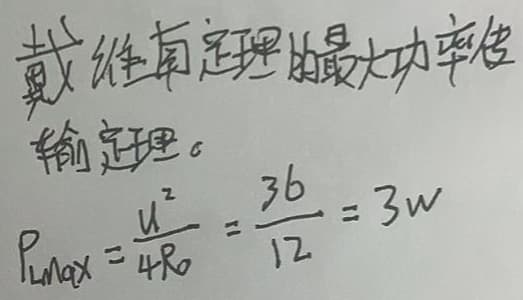 戴维南定理的最大功率传
输定理。
PLmax = u²/4R₀ = 36/12 = 3w